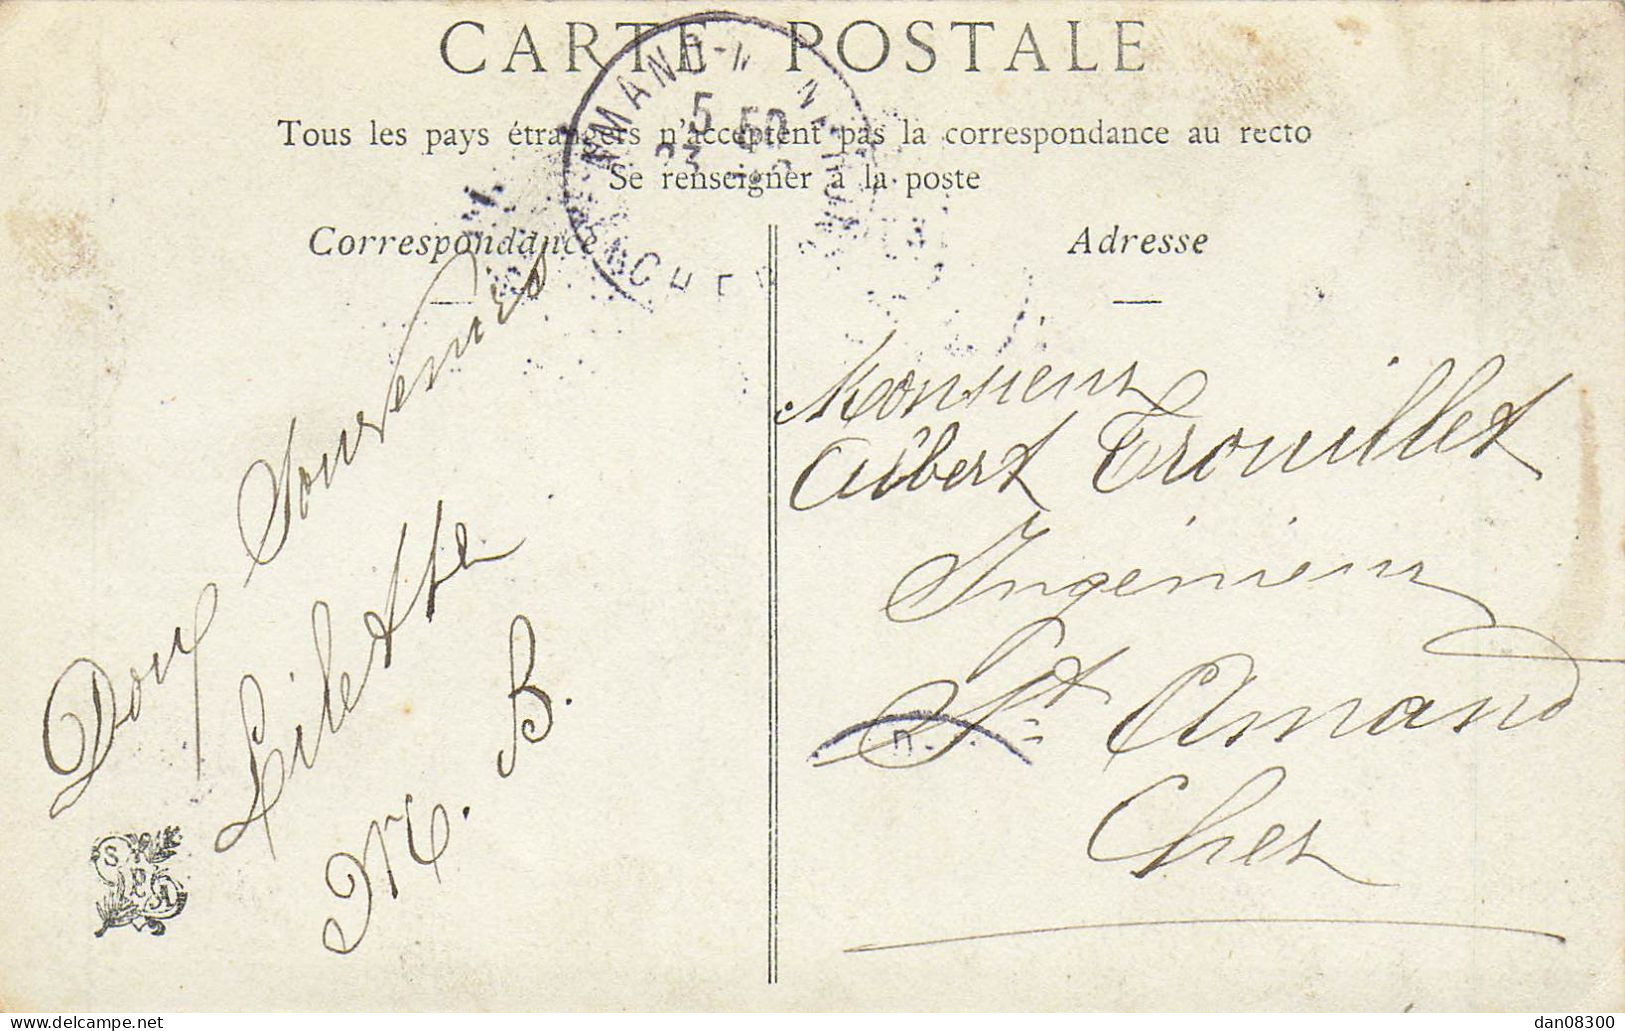 CARTE POSTALE
Tous les pays étrangers n'acceptent pas la correspondance au recto
Se renseigner à la poste
Correspondance
Adresse
Doux Souvenirs
Lilette
M. B.
Monsieur
Albert Trouillet
Ingénieur
St Amand
Cher
dan08300